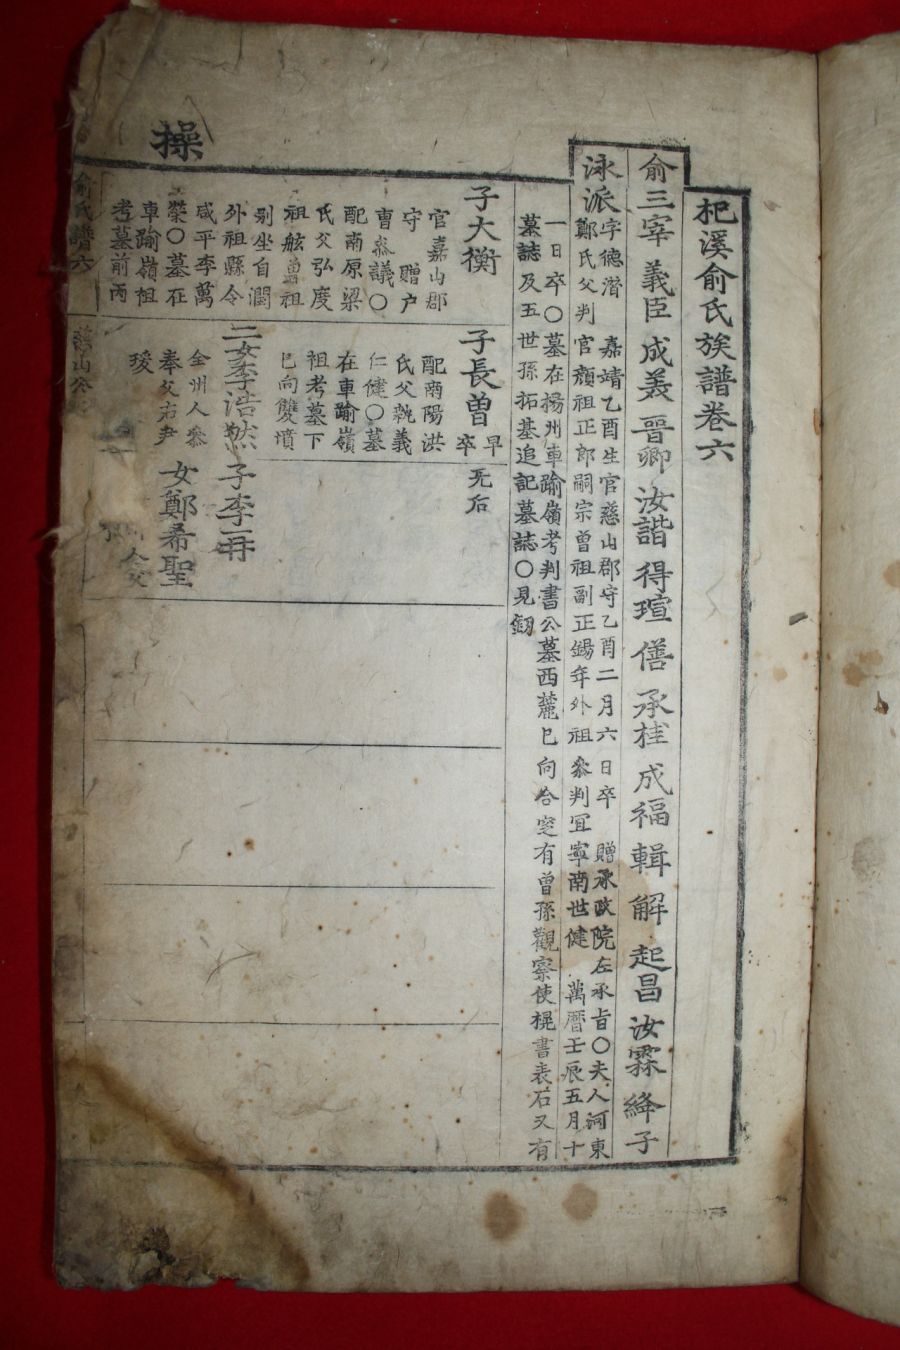 杞溪俞氏族譜卷六
俞三宰 義臣 成義 晉卿 汝諧 得瑄 僐 承桂 成福 輯 解 起昌 汝霖 絳 子
泳派
字德潛 嘉靖乙酉生官慈山郡守乙酉二月六日卒 贈承政院左承旨〇夫人河東
鄭氏父判官顏祖正郎嗣宗曾祖副正錫年外祖叅判冝寧南世健 萬曆壬辰五月十
一日卒〇墓在楊州車踰嶺考判書公墓西麓巳向合窆有曾孫觀察使棍書表石又有
墓誌及五世孫拓基追記墓誌〇見
子大衡
官嘉山郡
守 贈户
曹叅議〇
配南原梁
氏父弘度
祖舷曾祖
别坐自澗
外祖縣令
咸平李萬
榮〇墓在
車踰嶺祖
考墓前丙
子長曾
早
卒
配南陽洪
氏父執義
仁健〇墓
在車踰嶺
祖考墓下
巳向雙墳
无后
二女李浩然
全州人叅
奉父右尹
子李一冉
女鄭希聖
操
俞氏譜六
慈山公